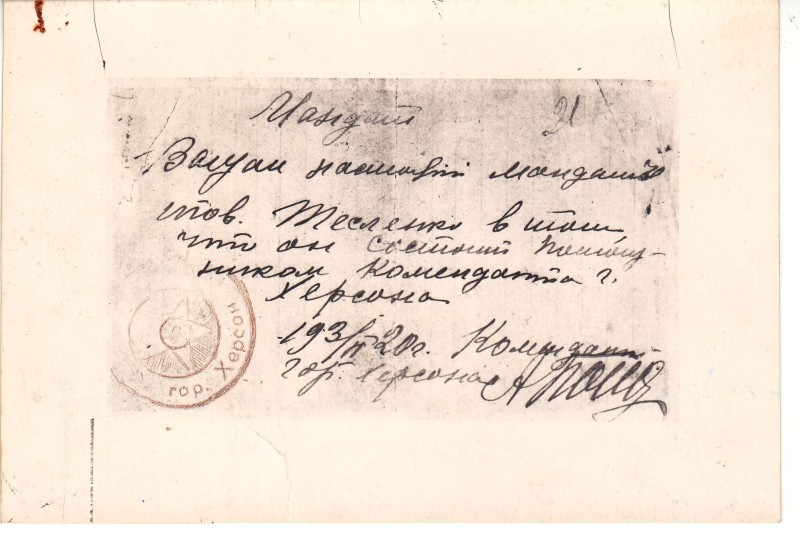 Мандат
21
настоящий мандат
тов. Тесленко в том
что он состоит помощ-
ником Коменданта г.
Херсона
20г. Комендант
гор. Херсона
гор. Херсон